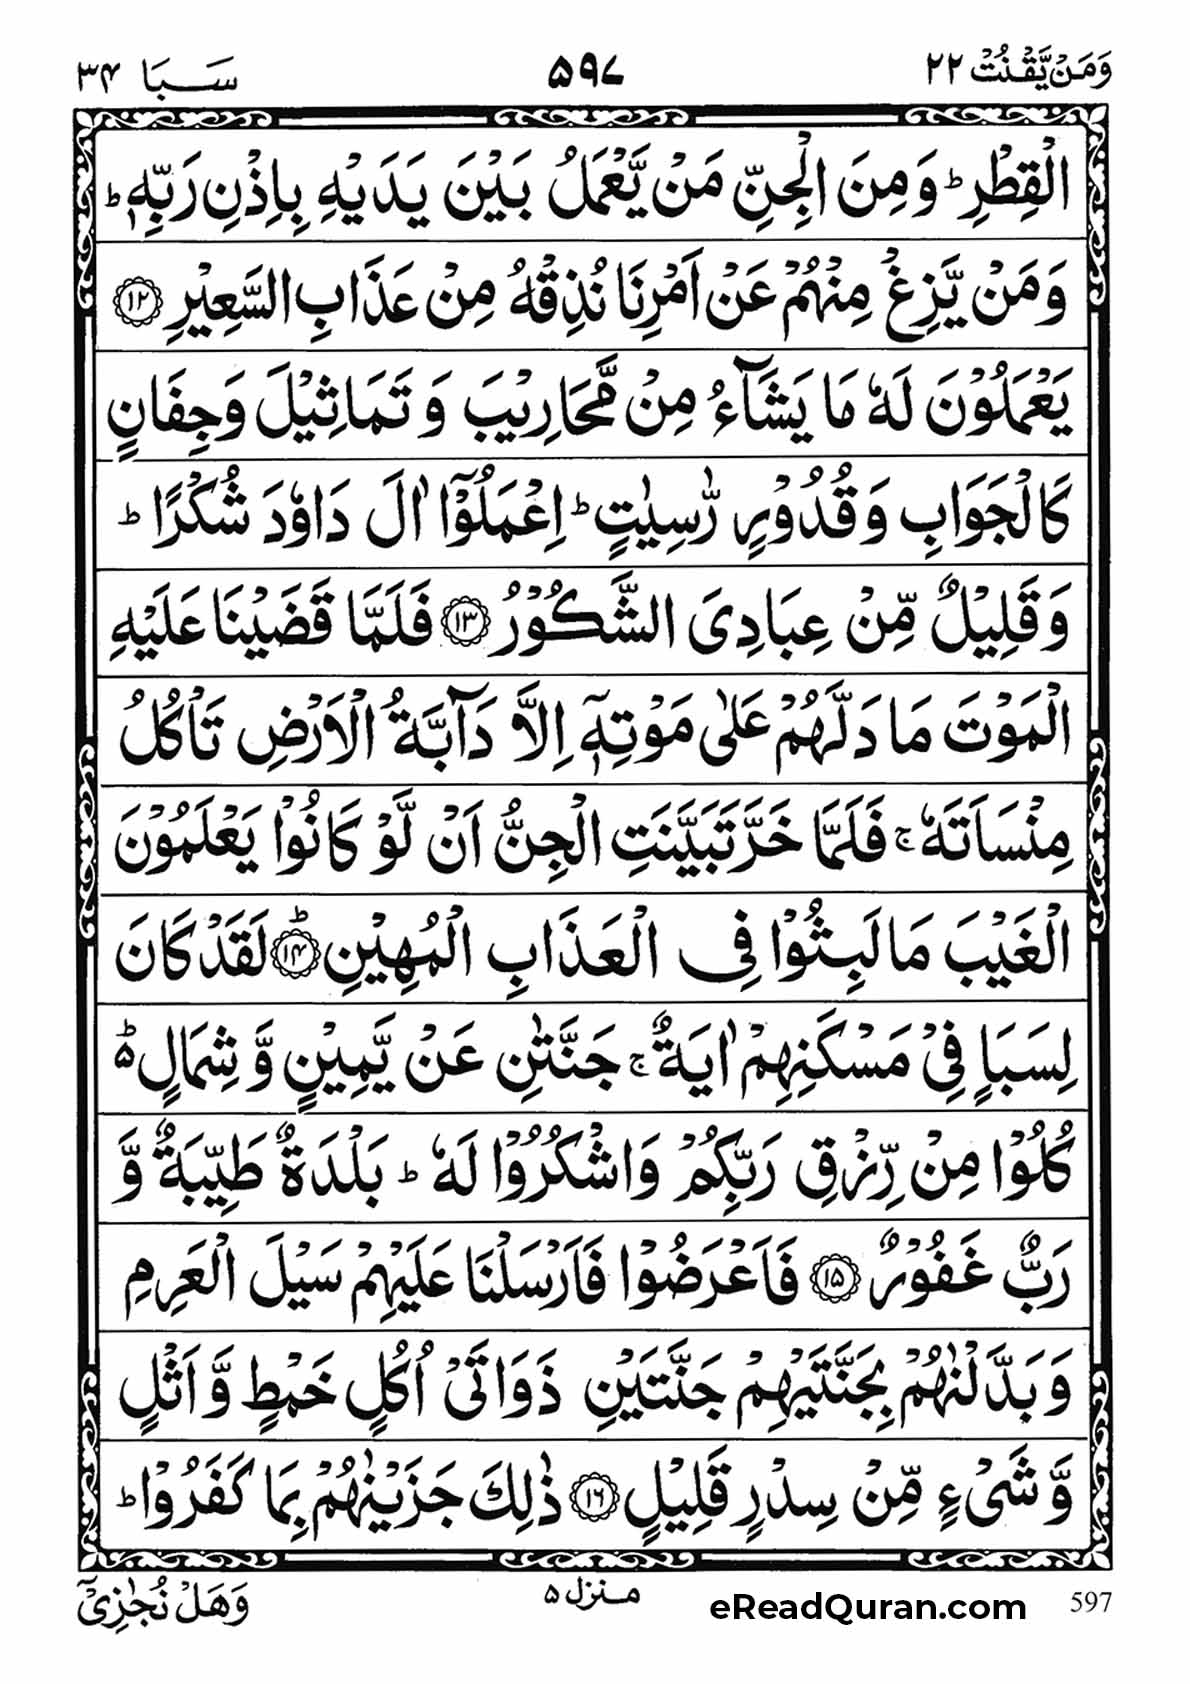 وَمَنْ يَّقْنُتْ ٢٢ ۵۹۷ سَبَا ٣۴
الْقِطْرِ ؕ وَ مِنَ الْجِنِّ مَنْ يَّعْمَلُ بَيْنَ يَدَيْهِ بِاِذْنِ رَبِّهٖ ؕ
وَ مَنْ يَّزِغْ مِنْهُمْ عَنْ اَمْرِنَا نُذِقْهُ مِنْ عَذَابِ السَّعِيْرِ ۝۱۲
يَعْمَلُوْنَ لَهٗ مَا يَشَآءُ مِنْ مَّحَارِيْبَ وَ تَمَاثِيْلَ وَ جِفَانٍ
كَالْجَوَابِ وَ قُدُوْرٍ رّٰسِيٰتٍ ؕ اِعْمَلُوْۤا اٰلَ دَاوٗدَ شُكْرًا ؕ
وَ قَلِيْلٌ مِّنْ عِبَادِيَ الشَّكُوْرُ ۝۱۳ فَلَمَّا قَضَيْنَا عَلَيْهِ
الْمَوْتَ مَا دَلَّهُمْ عَلٰى مَوْتِهٖۤ اِلَّا دَآبَّةُ الْاَرْضِ تَاْكُلُ
مِنْسَاَتَهٗ ۚ فَلَمَّا خَرَّ تَبَيَّنَتِ الْجِنُّ اَنْ لَّوْ كَانُوْا يَعْلَمُوْنَ
الْغَيْبَ مَا لَبِثُوْا فِي الْعَذَابِ الْمُهِيْنِ ؕ۝۱۴ لَقَدْ كَانَ
لِسَبَاٍ فِيْ مَسْكَنِهِمْ اٰيَةٌ ۚ جَنَّتٰنِ عَنْ يَّمِيْنٍ وَّ شِمَالٍ ؕ۬
كُلُوْا مِنْ رِّزْقِ رَبِّكُمْ وَ اشْكُرُوْا لَهٗ ؕ بَلْدَةٌ طَيِّبَةٌ وَّ
رَبٌّ غَفُوْرٌ ۝۱۵ فَاَعْرَضُوْا فَاَرْسَلْنَا عَلَيْهِمْ سَيْلَ الْعَرِمِ
وَ بَدَّلْنٰهُمْ بِجَنَّتَيْهِمْ جَنَّتَيْنِ ذَوَاتَيْ اُكُلٍ خَمْطٍ وَّ اَثْلٍ
وَّ شَيْءٍ مِّنْ سِدْرٍ قَلِيْلٍ ۝۱۶ ذٰلِكَ جَزَيْنٰهُمْ بِمَا كَفَرُوْا ؕ
وَهَلْ نُجٰزِيْۤ
منزل ۵
eReadQuran.com
597